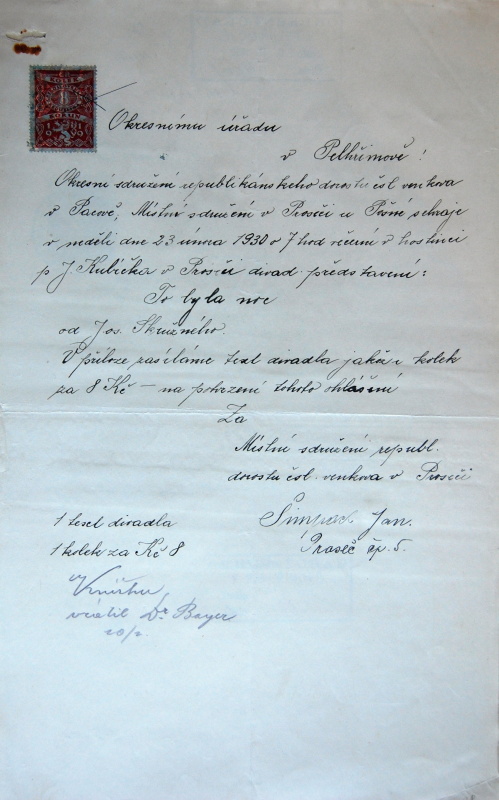 KOLEK
1
KORUN
Okresnímu úřadu
v Pelhřimově!
Okresní sdružení republikánského dorostu čsl venkova
v Pacově, Místní sdružení v Proseči u Pošné sehraje
v neděli dne 23 února 1930 o 7 hod večerní v hostinci
p J. Kubíčka v Proseči divad. představení:
To byla noc
od Jos. Skružného
V příloze zasíláme text divadla jakož i kolek
za 8 Kč — na potvrzení tohoto ohlášení
Za
Místní sdružení republ.
dorostu čsl. venkova v Proseči
Šimpach Jan.
Proseč čp. 5.
1 text divadla
1 kolek za Kč 8
Knížku
vrátil Dr Bayer
20/2.